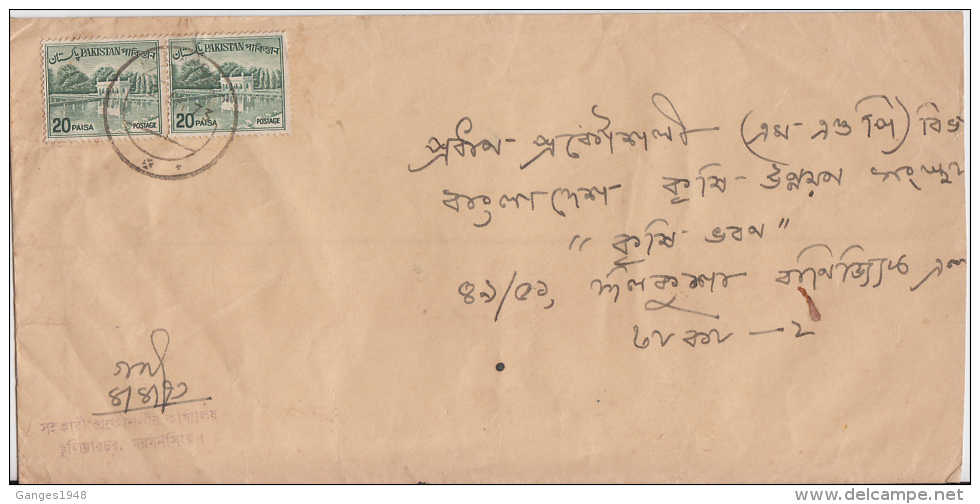 پاکستان PAKISTAN পাকিস্তান
20 PAISA POSTAGE
پاکستان PAKISTAN পাকিস্তান
20 PAISA POSTAGE
প্রধান প্রকৌশলী (এম-এণ্ড পি) বিভ
বাংলাদেশ কৃষি-উন্নয়ন সংস্থা
"কৃষি-ভবন"
৪৯/৫১, দিলকুশা বানিজ্যিক এলা
ঢাকা - ২
সহকারী প্রকৌশলীর কার্য্যালয়
কুলিয়ারচর, ময়মনসিংহ।
Ganges1948
www.delcampe.net